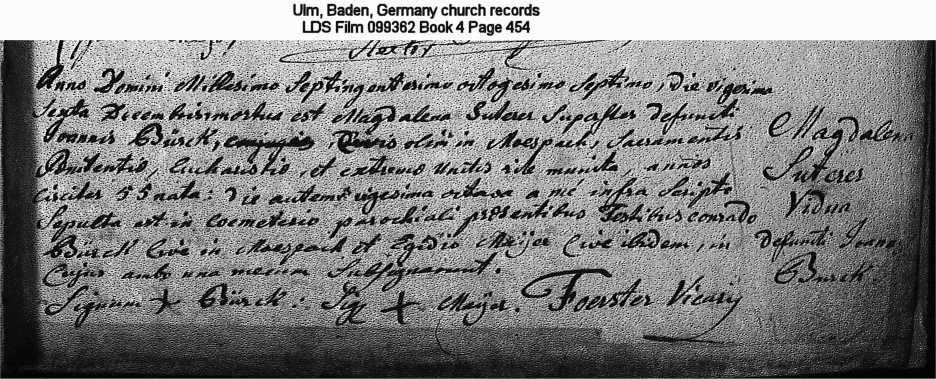 Ulm, Baden, Germany church records
LDS Film 099362 Book 4 Page 454
Anno Domini Millesimo Septingentesimo octogesimo Septimo, die vigesima
Sexta Decembris mortua est Magdalena Suterer Superstes defuncti
Joannis Bürck, Civis olim in Moespach, Sacramentis
Penitentio, Eucharistio, et extremo Unctis rite munita, annos
circiter 55 nata: die autem vigesima octava a me infra Scripto
Sepulta est in Coemeterio parochiali presentibus Testibus conrado
Bürck Cive in Moesbach et Egidio Maijer Cive ibidem, in
Cujus una mecum Subsignarunt.
Signum + Bürck: Sig + Maijer. Foerster Vicarij
Magdalena
Suterer
Vidua
defuncti Joannis
Burck.